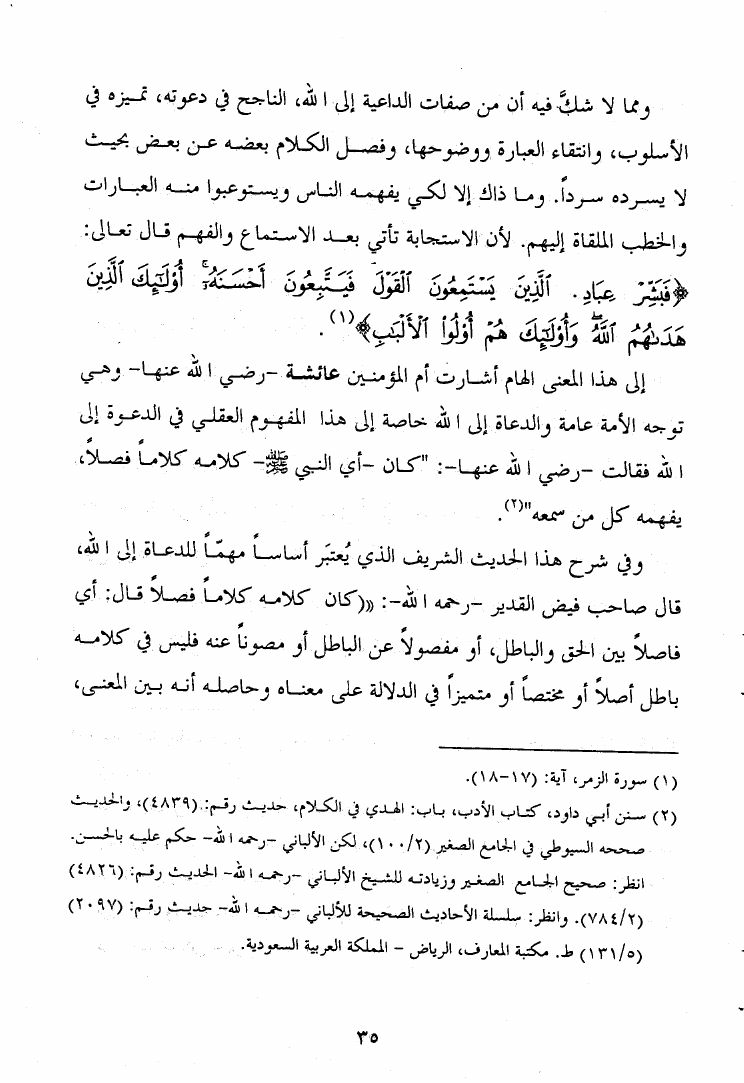 ومما لا شكَّ فيه أن من صفات الداعية إلى الله، الناجح في دعوته، تميزه في
الأسلوب، وانتقاء العبارة ووضوحها، وفصل الكلام بعضه عن بعض بحيث
لا يسرده سرداً. وما ذاك إلا لكي يفهمه الناس ويستوعبوا منه العبارات
والخطب الملقاة إليهم. لأن الاستجابة تأتي بعد الاستماع والفهم قال تعالى:
﴿فَبَشِّرْ عِبَادِ. ٱلَّذِينَ يَسْتَمِعُونَ ٱلْقَوْلَ فَيَتَّبِعُونَ أَحْسَنَهُۥٓۚ أُوْلَٰٓئِكَ ٱلَّذِينَ
هَدَىٰهُمُ ٱللَّهُۖ وَأُوْلَٰٓئِكَ هُمْ أُوْلُواْ ٱلْأَلْبَٰبِ﴾(١).
إلى هذا المعنى الهام أشارت أم المؤمنين عائشة -رضي الله عنها- وهي
توجه الأمة عامة والدعاة إلى الله خاصة إلى هذا المفهوم العقلي في الدعوة إلى
الله فقالت -رضي الله عنها-: "كان -أي النبي ﷺ- كلامه كلاماً فصلاً،
يفهمه كل من سمعه"(٢).
وفي شرح هذا الحديث الشريف الذي يُعتبَر أساساً مهمّاً للدعاة إلى الله،
قال صاحب فيض القدير -رحمه الله-: «(كان كلامه كلاماً فصلاً قال: أي
فاصلاً بين الحق والباطل، أو مفصولاً عن الباطل أو مصوناً عنه فليس في كلامه
باطل أصلاً أو مختصاً أو متميزاً في الدلالة على معناه وحاصله أنه بين المعنى،
(١) سورة الزمر، آية: (١٧-١٨).
(٢) سنن أبي داود، كتاب الأدب، باب: الهدي في الكلام، حديث رقم: (٤٨٣٩)، والحديث
صححه السيوطي في الجامع الصغير (١٠٠/٢)، لكن الألباني -رحمه الله- حكم عليه بالحسن.
انظر: صحيح الجامع الصغير وزيادته للشيخ الألباني -رحمه الله- الحديث رقم: (٤٨٢٦)
(٧٨٤/٢). وانظر: سلسلة الأحاديث الصحيحة للألباني -رحمه الله- حديث رقم: (٢٠٩٧)
(١٣١/٥) ط. مكتبة المعارف، الرياض - المملكة العربية السعودية.
٣٥